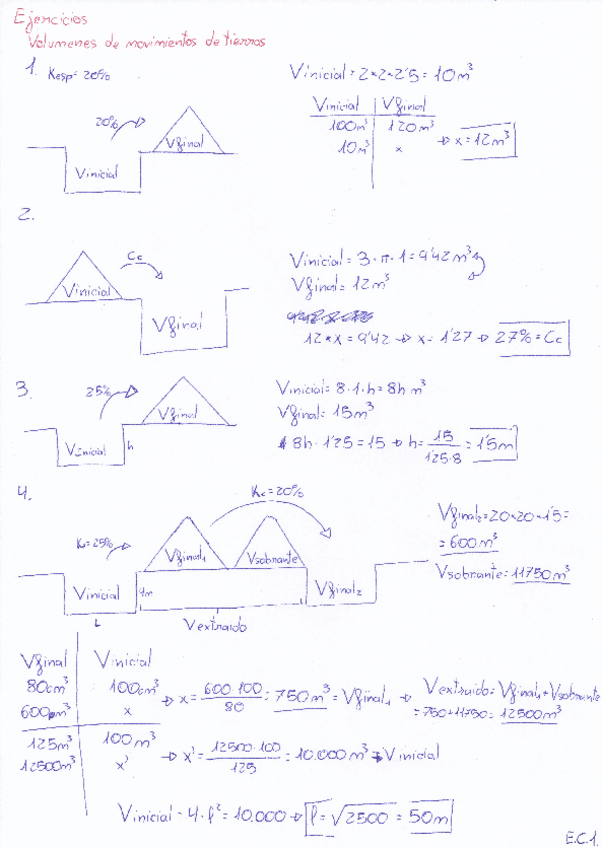 Ejercicios
Volumenes de movimientos de tierras
1. Kesp= 20%
Vinicial = 2*2*2'5 = 10m³
Vinicial | Vfinal
100m³ | 120m³
10m³ | x → x = 12m³
20%
Vfinal
Vinicial
2.
Cc
Vinicial
Vfinal
Vinicial = 3·π·1 = 9'42m³
Vfinal = 12m³
12*x = 9'42 → x = 1'27 → 27% = Cc
3.
25%
Vfinal
Vinicial
h
Vinicial = 8·1·h = 8h m³
Vfinal = 15m³
8h·1'25 = 15 → h = 15/1'25·8 = 1'5m
4.
Kc = 20%
K= 25%
Vfinal₁
Vsobrante
Vinicial
4m
Vfinal₂
L
Vextraido
Vfinal₂ = 20*20*1'5 =
= 600m³
Vsobrante = 11750m³
Vfinal | Vinicial
80cm³ | 100cm³
600m³ | x
→ x = 600·100/80 = 750m³ = Vfinal₁ → Vextraido = Vfinal₁ + Vsobrante
= 750+11750 = 12500m³
125m³ | 100m³
12500m³ | x'
→ x' = 12500·100/125 = 10.000m³ → Vinicial
Vinicial = 4·l² = 10.000 → l = √2500 = 50m
E.C.1.